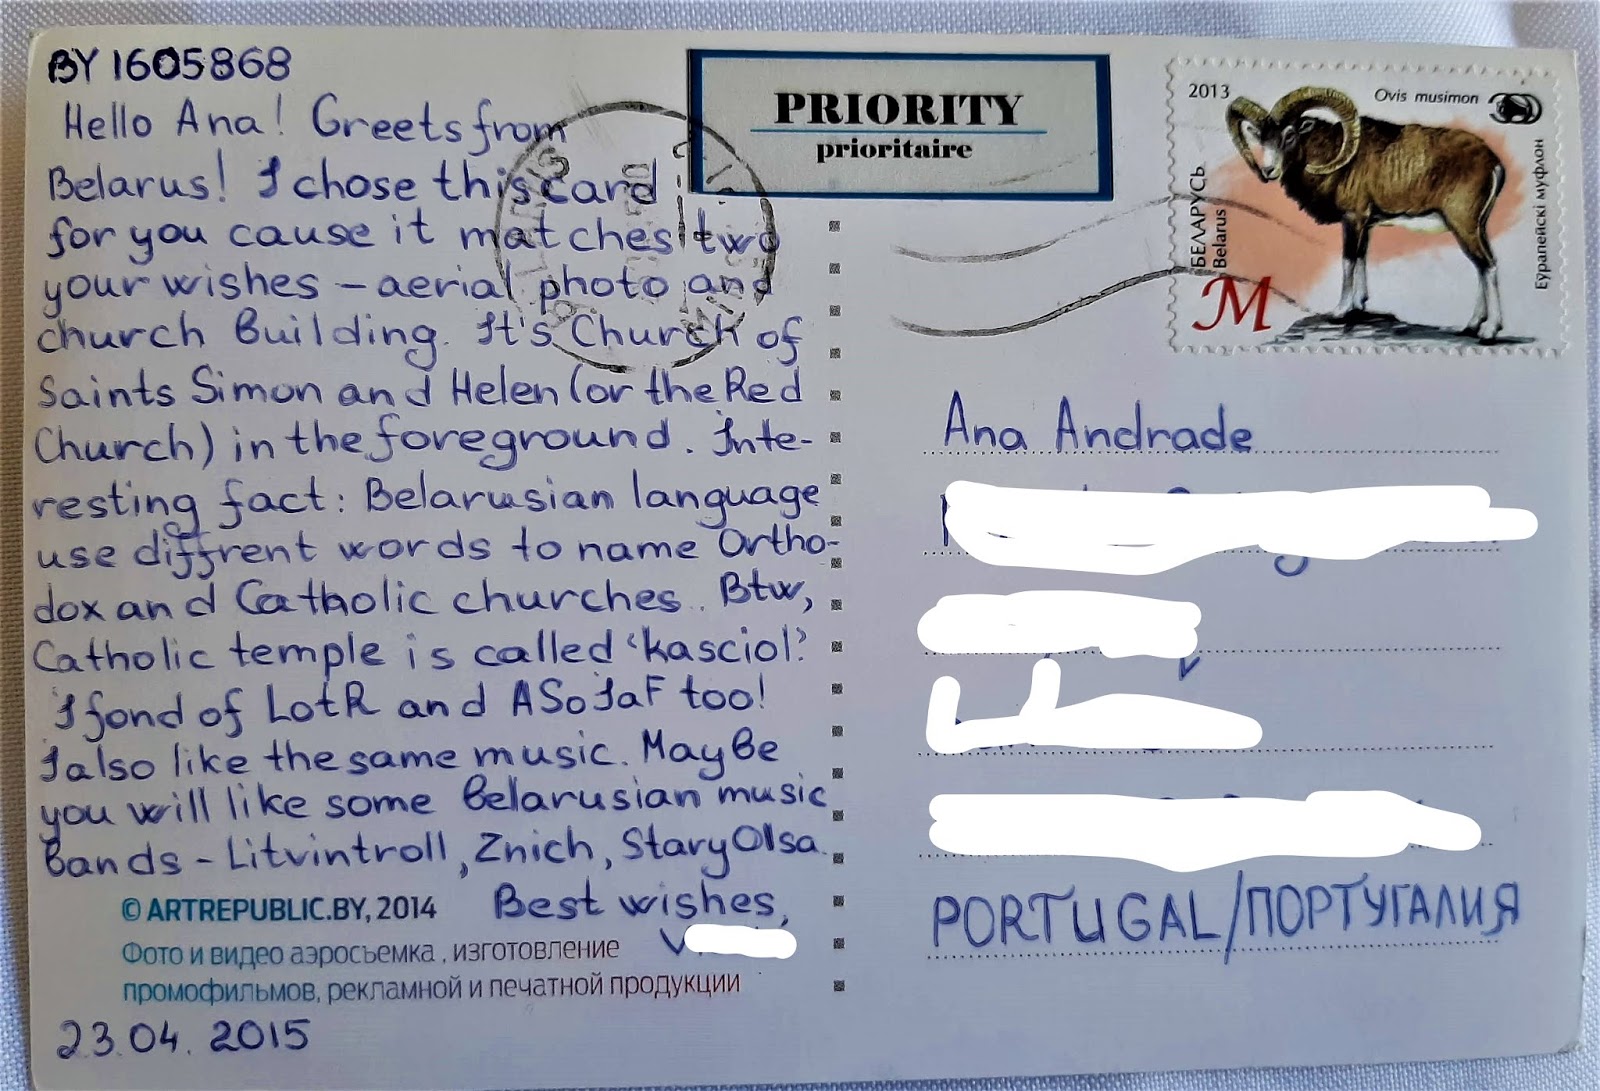 BY 1605868
Hello Ana! Greets from
Belarus! I chose this card
for you cause it matches two
your wishes – aerial photo and
church building. It's Church of
Saints Simon and Helen (or the Red
Church) in the foreground. Inte-
resting fact: Belarusian language
use diffrent words to name Ortho-
dox and Catholic churches. Btw,
Catholic temple is called 'kasciol'.
I fond of LotR and ASoIaF too!
I also like the same music. Maybe
you will like some Belarusian music
bands – Litvintroll, Znich, Stary Olsa.
Best wishes,
V
© ARTREPUBLIC.BY, 2014
Фото и видео аэросъемка , изготовление
промофильмов, рекламной и печатной продукции
23.04. 2015
PRIORITY
prioritaire
2013
Ovis musimon
БЕЛАРУСЬ
Belarus
Еўрапейскі муфлон
M
Ana Andrade
PORTUGAL/ПОРТУГАЛИЯ